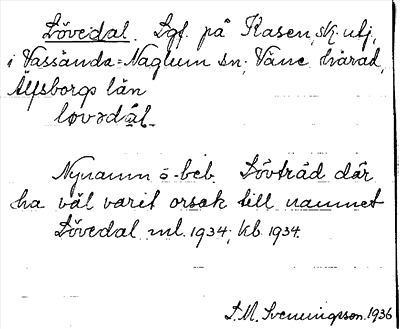 Lövedal. Lgf. på Kasen, sk. utj.
i Vassända-Naglum sn, Väne härad,
Älfsborgs län
lövədál
Nynamn o-beb. Lövträd där
ha väl varit orsak till namnet
Lövedal ml. 1934; kb. 1934.
S.M. Svenningsson. 1936